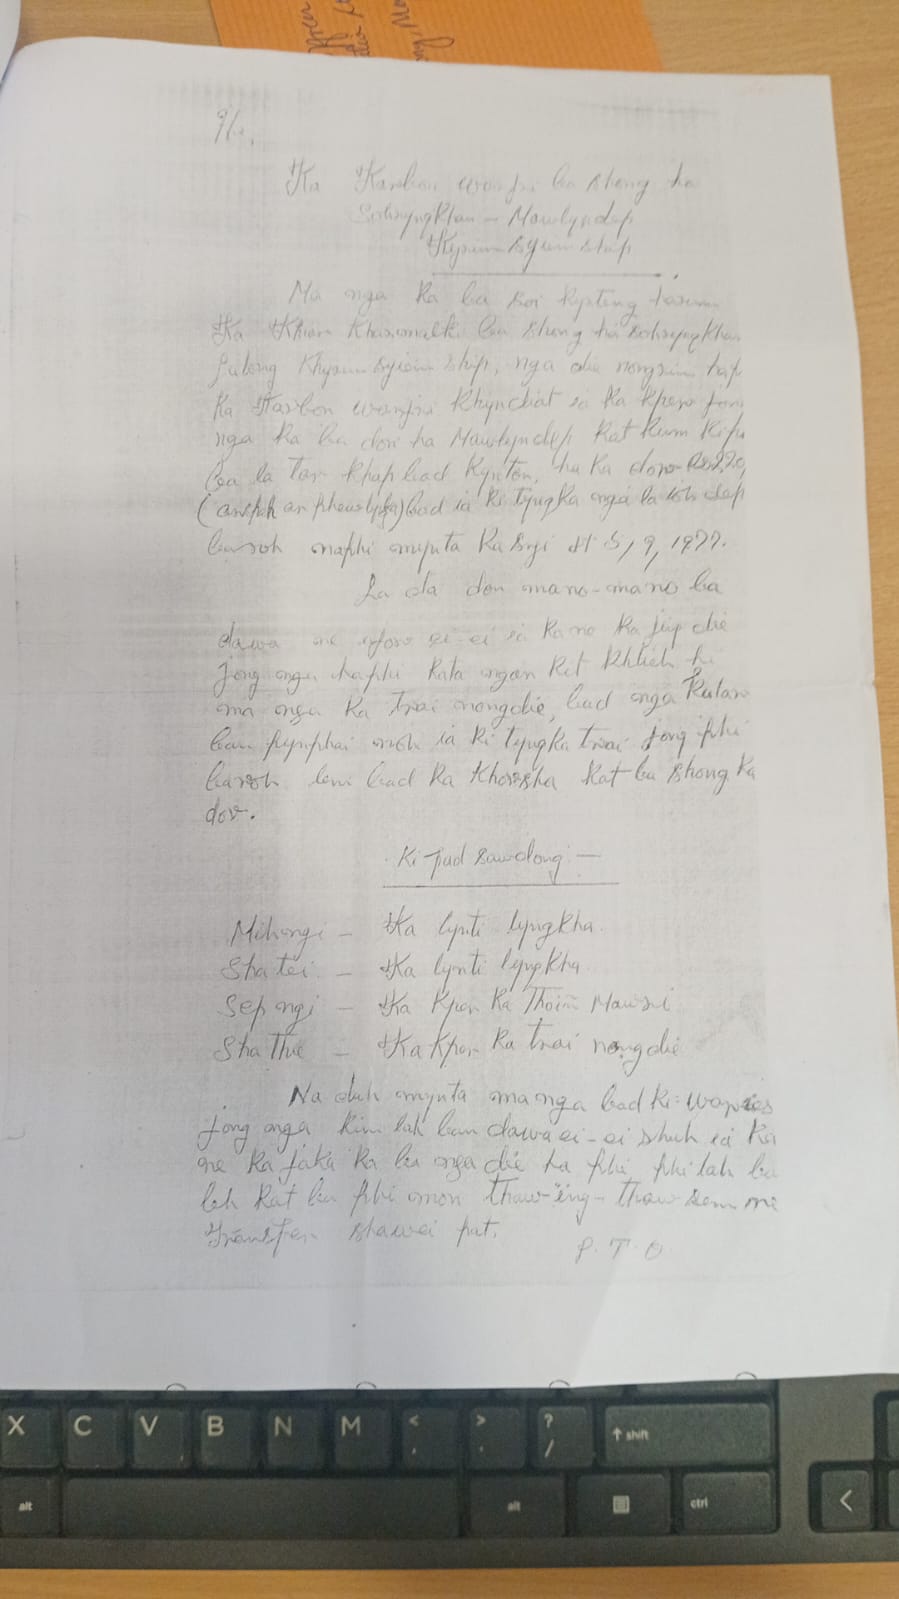 Ka Karbon wanpri ba shong ha
Sohryngkham - Mawlyndep
Khyrim Syiem ship
Ma nga ka ba soi kyrteng harum
Ka Khasmalki ba shong ha Sohryngkham
Pulong Khyrim Syiem ship, nga die nongrim hap
Ka Karbon wanpri khyndiat ia ka kper jong
nga ka ba don ha Mawlyndep kat kum kifu
ba la Tar khap bad kynton, ha ka dor Rs 220
(arspah arphew tyngka) bad ia ki tyngka nga la ioh dap
baroh naphi mynta ka sngi dt 5, 9, 1977.
La da don mano-mano ba
dawa ne ei-ei ia kano ka jing die
jong nga haphi kata ngan ket khlieh hi
ma nga ka trai nongdie, bad nga kular
ban pynphai noh ia ki tyngka trai jong phi
baroh lem bad ka khorsha kat ba shong ka
dor.
Ki Jud Sawdong -
Mihngi - Ka lynti lyngkha.
Sha tei - Ka lynti lyngkha
Sep ngi - Ka kper ka Mawsri
Sha Thie - Ka kper ka trai nongdie
Na duh mynta ma nga bad ki
jong nga kim lah ban dawa ei-ei shuh ia ka
ne ka jaka ka ba nga die ha phi phi lah ba
leh kat ba phi mon thaw-ïing - thaw sem ne
Transfer shawei pat.
P. T. O